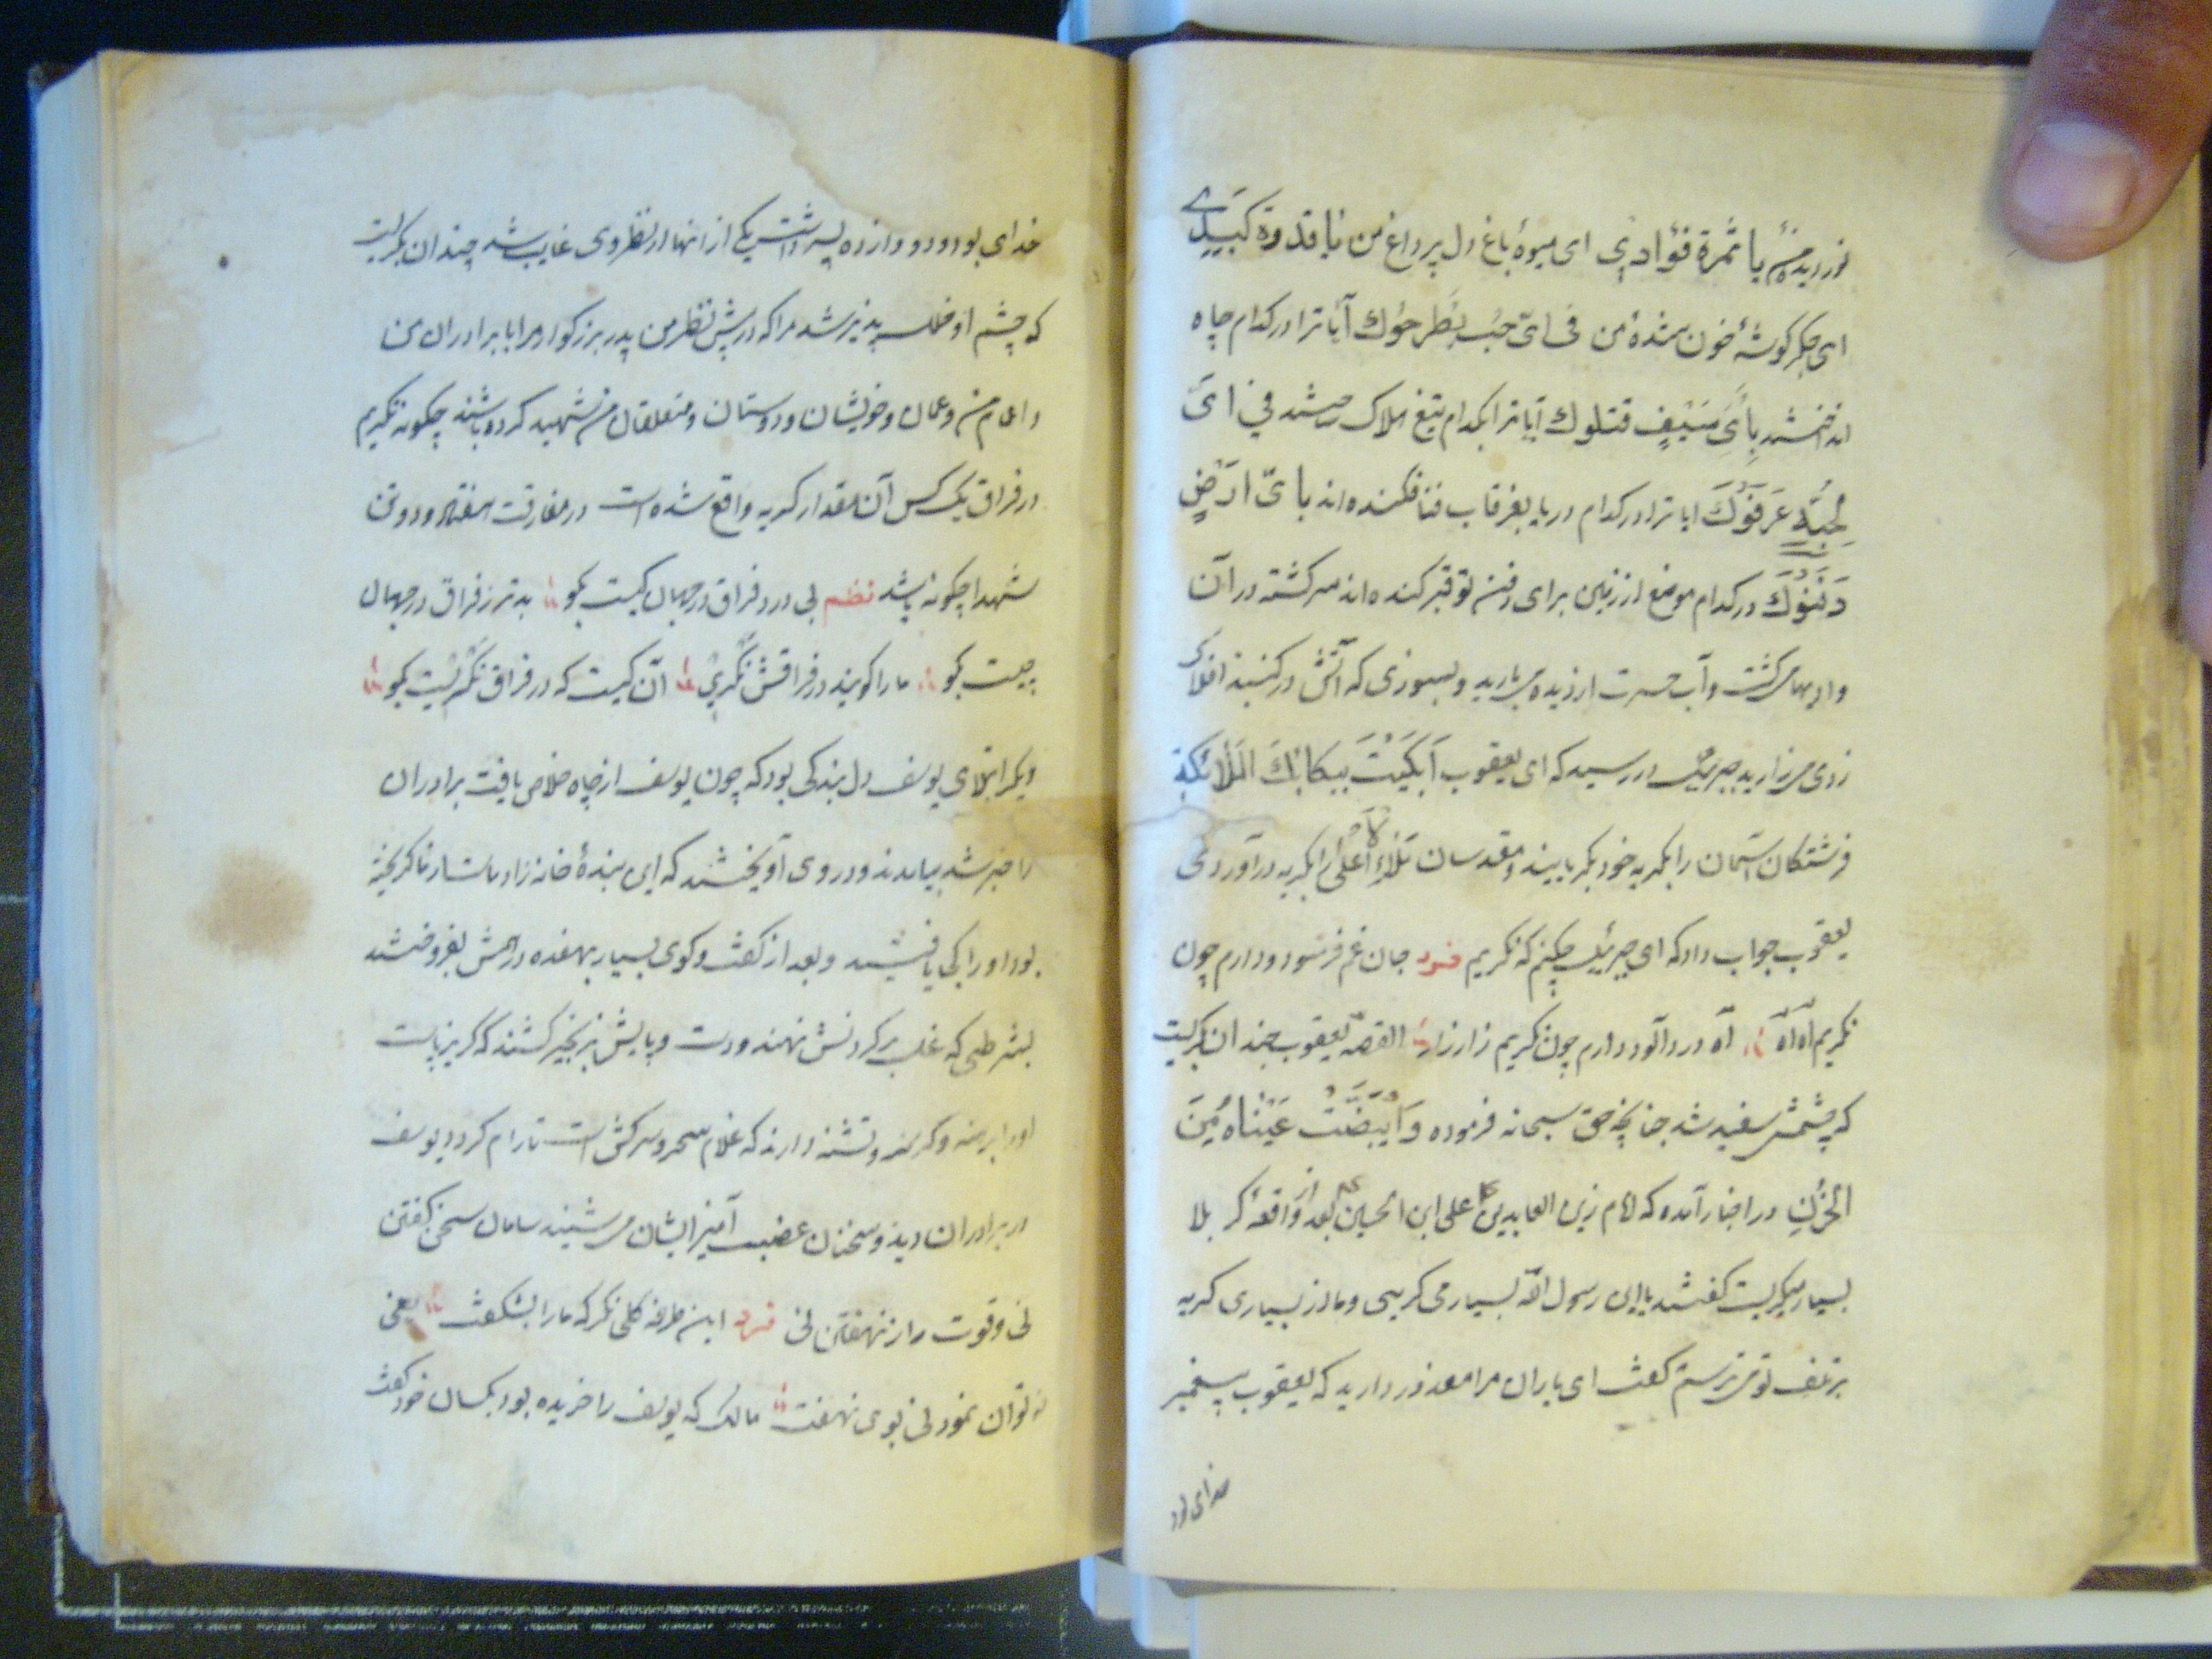 نور دیده من یا ثمرة فؤادی ای میوهٔ باغ دل پر داغ من یا قدوة کبدی
ای جکر کوشهٔ خون شدهٔ من فی ای جب بطرحوك آیا ترا در کدام چاه
انداختند بای سیف قتلوك آیا ترا بکدام تیغ هلاک کردند فی ای
لجة غرقوك ایا ترا در کدام دریا بغرقاب فنا فکنده‌اند بای ارض
دفنوك در کدام موضع از زمین برای دفن تو قبر کنده‌اند سرکشته در آن
وادیها میکشت و آب حسرت از دیده میبارید و بسوزی که آتش در کنبد افلاک
زدی میزارید جبرئیل در رسید که ای یعقوب ابکیت ببکائك الملائكة
فرشتکان آسمان را بکریه خود بکریانیدی و مقدسان ملاء اعلی را بکریه درآوردی
یعقوب جواب داد که ای جبرئیل چکنم که نکریم فرد جان غم فرسود دارم چون
نکریم آه آه آه درد آلود دارم چون نکریم زار زار القصه یعقوب چندان بکریست
که چشمش سفید شد چنانچه حق سبحانه فرموده وابیضت عیناه من
الحزن در اخبار آمده که امام زین العابدین علی ابن الحسین بعد از واقعهٔ کربلا
بسیار میکریست کفتند یا ابن رسول الله بسیار می کریی و ما از بسیاری کریه
بر تلف تو می ترسیم کفت ای یاران مرا معذور دارید که یعقوب پیغمبر
خدای بود
خدای بود و دوازده پسر داشت یکی از آنها از نظر وی غایب شد چندان بکریست
که چشم او خلل پذیر شد مرا که در پیش نظر من پدر بزرکوار مرا با برادران من
و اعمام من و عمان و خویشان و دوستان و متعلقان من شهید کرده باشند چکونه نکریم
در فراق یک کس آن مقدار کریه واقع شده است در مفارقت هفتاد و دو تن
شهدا چکونه باشد نظم بی درد فراق در جهان کیست بکو بدتر ز فراق در جهان
چیست بکو ما را کویند در فراقش نکری آن کیست که در فراق نکریست بکو
دیکر ابتلای یوسف دل بندکی بود که چون یوسف از چاه خلاص یافت برادران
را خبر شد بیامدند و در وی آویختند که این بندهٔ خانه زاد ماست از ما کریخته
بود او را کی یافتید و بعد از کفت و کوی بسیار بهفده درمش بفروختند
بشرطی که غل بر کردنش نهند و دست و پایش بزنجیر کشند که کریزپاست
او را برهنه و کرسنه و تشنه دارند که غلام و سرکش است تا رام کردد یوسف
در برادران دید و سخنان غضب آمیز ایشان می شنید سامان سخن کفتن
نی و قوت راز نهفتن نی فرد این طرفه کلی نکر که ما را بشکفت یعنی
نه توان نمود نی بوی نهفت مالک که یوسف را خریده بود بکسان خود کفت